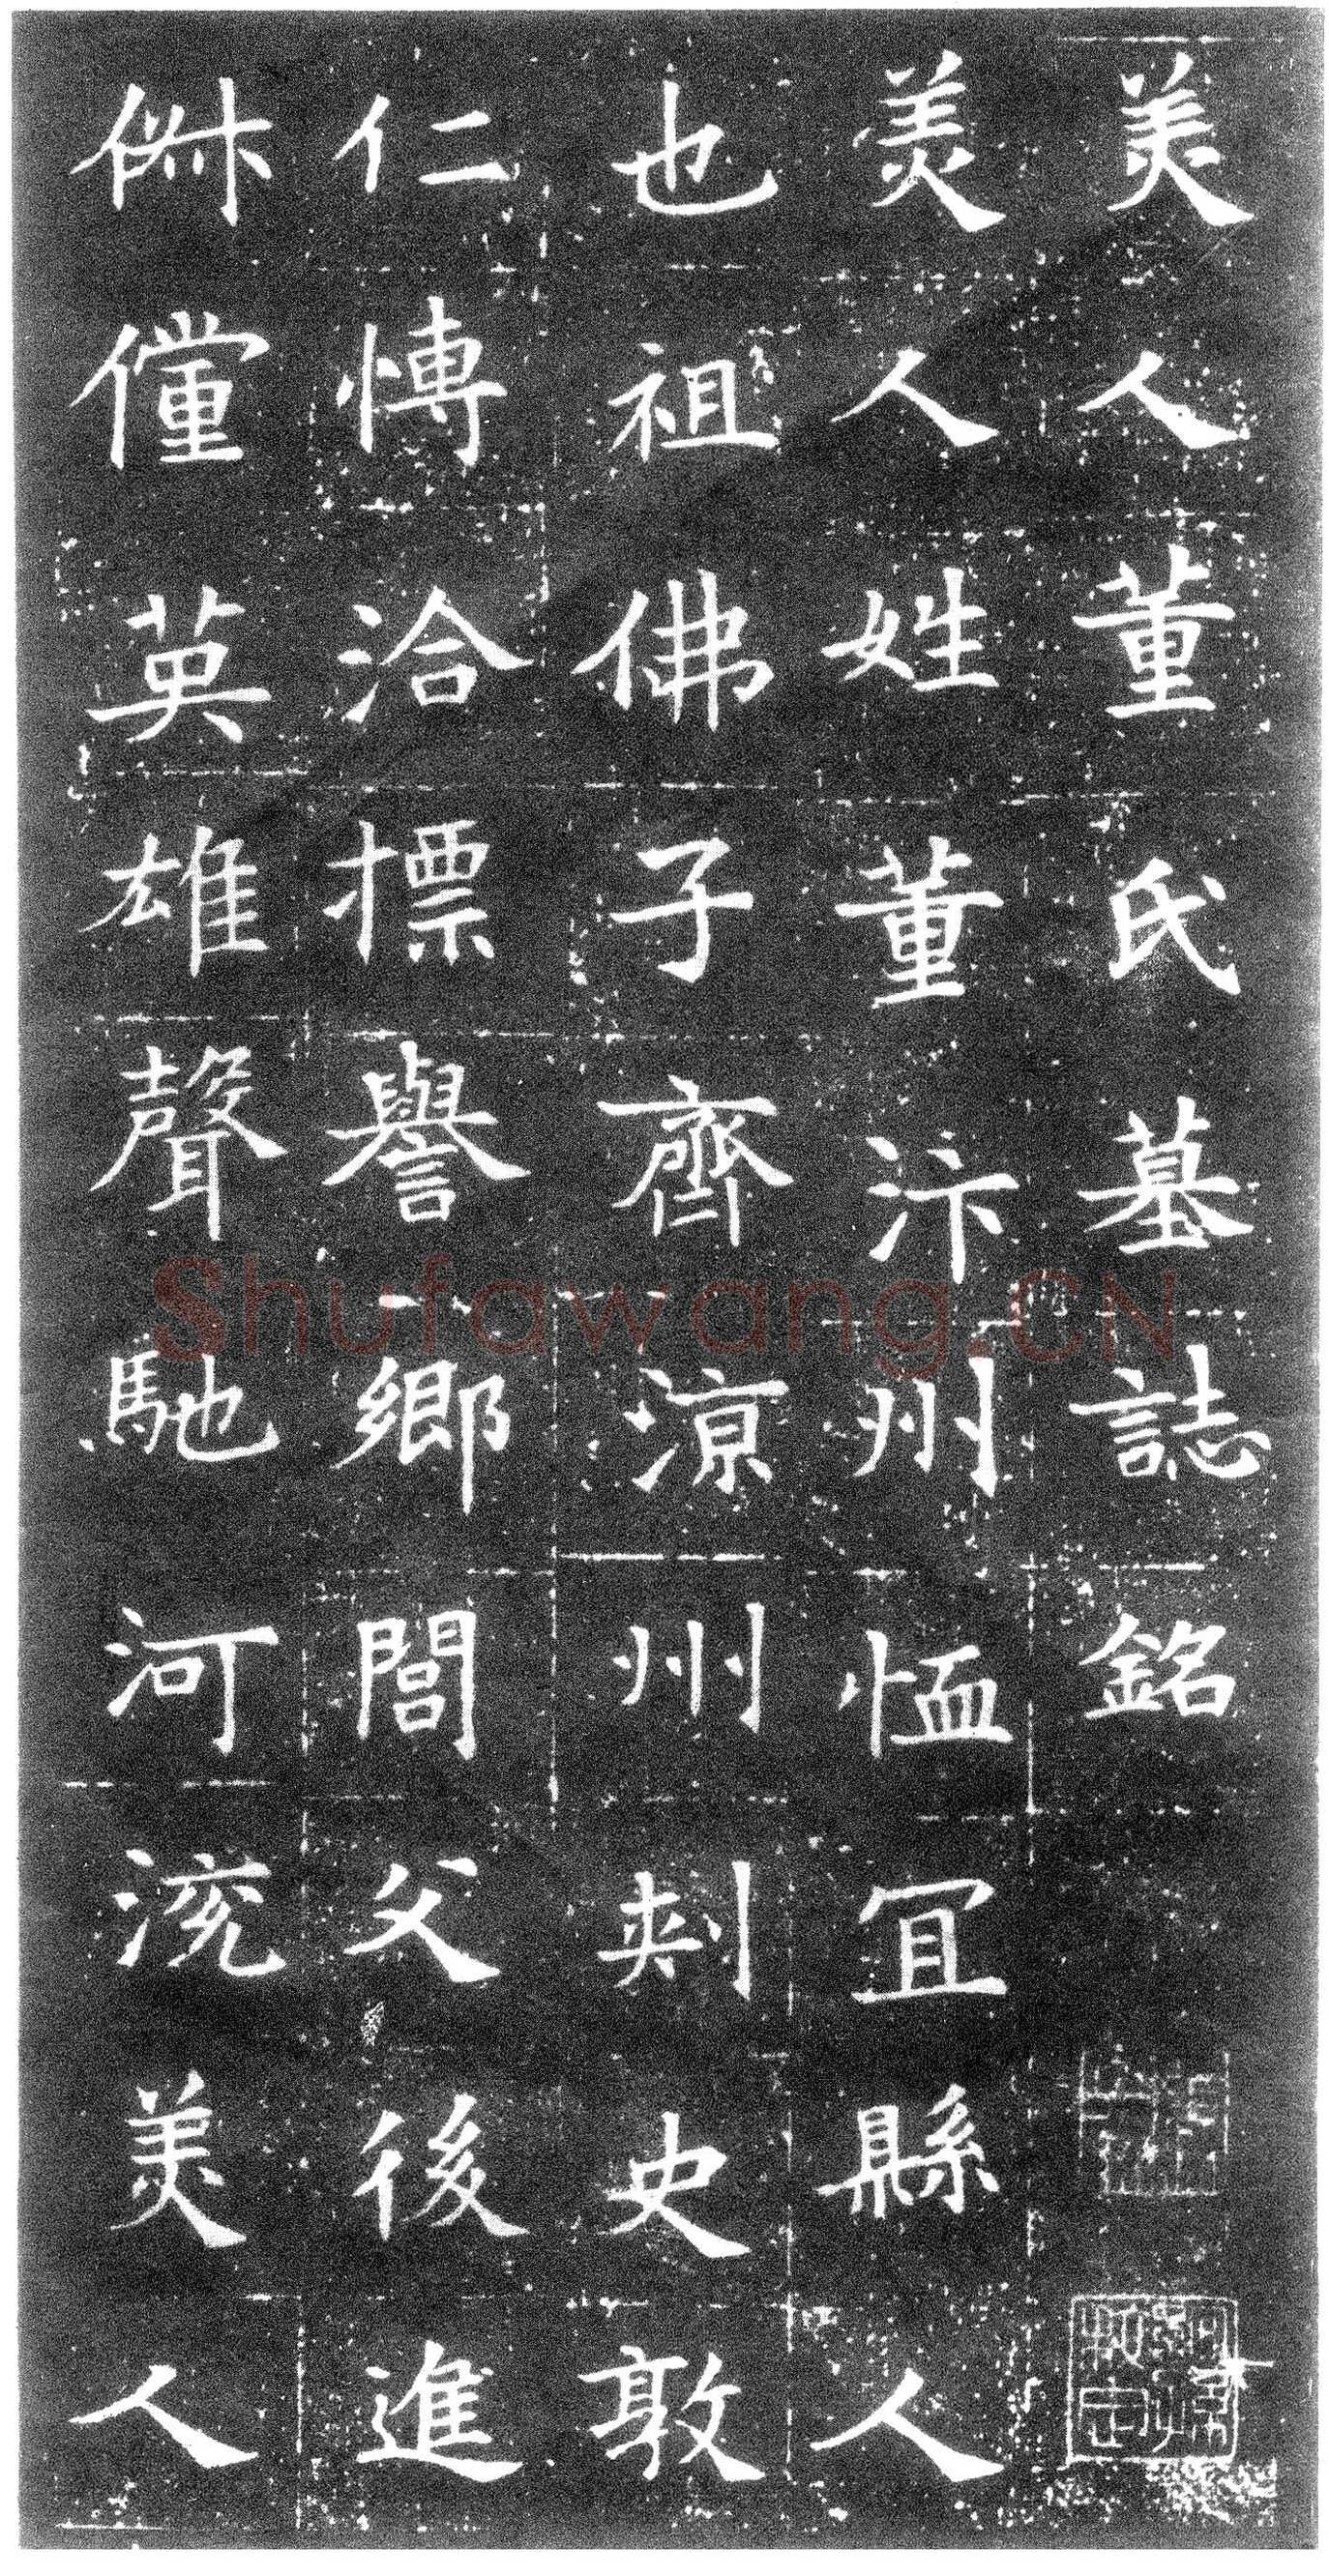 美人董氏墓誌銘
美人姓董汴州恤宜縣人
也祖佛子齊涼州刺史敦
仁愽洽標譽鄉閭父後進
俶儻英雄聲馳河流美人
Shufawang.CN